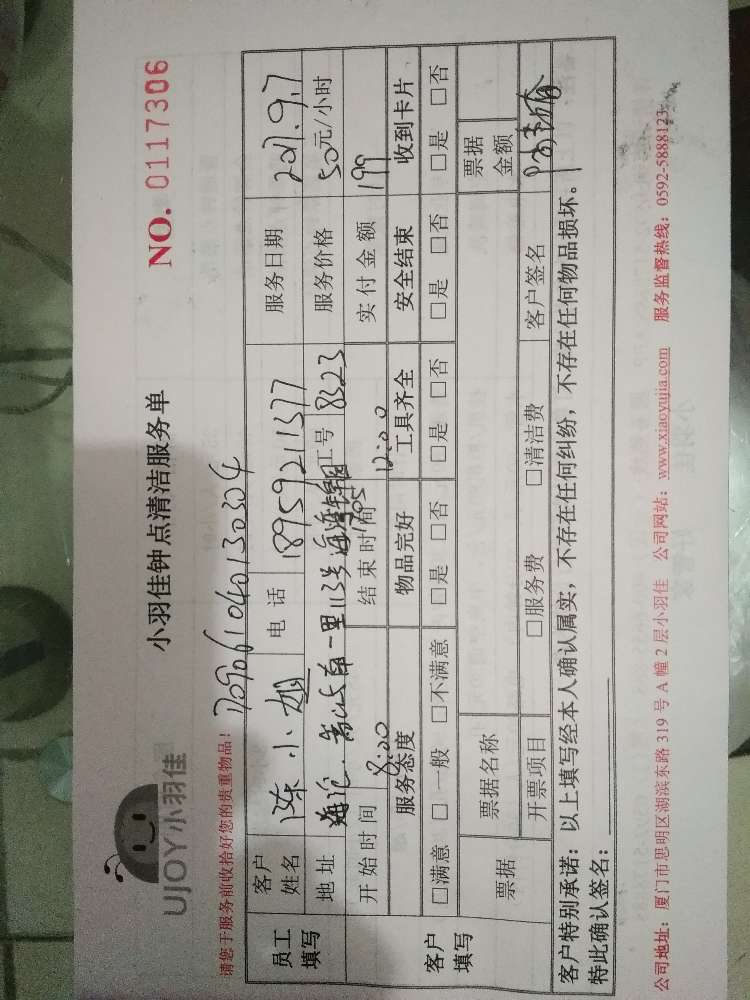 UJOY小羽佳
小羽佳钟点清洁服务单
NO. 0117306
请您于服务前收拾好您的贵重物品！
员工填写
客户姓名 陈小姐 电话 18959211377 服务日期 2017.9.7
地址 工号 8323 服务价格 50元/小时
开始时间 8:00 结束时间 12:00 实付金额 199
客户填写
服务态度 物品完好 工具齐全 安全结束 收到卡片
□满意 □一般 □不满意 □是 □否 □是 □否 □是 □否 □是 □否
票据 票据名称 票据金额
开票项目 □服务费 □清洁费 客户签名
客户特别承诺：以上填写经本人确认属实，不存在任何纠纷，不存在任何物品损坏。
特此确认签名：
公司地址：厦门市思明区湖滨东路 319 号 A 幢 2 层小羽佳 公司网站：www.xiaoyujia.com 服务监督热线：0592-5888123